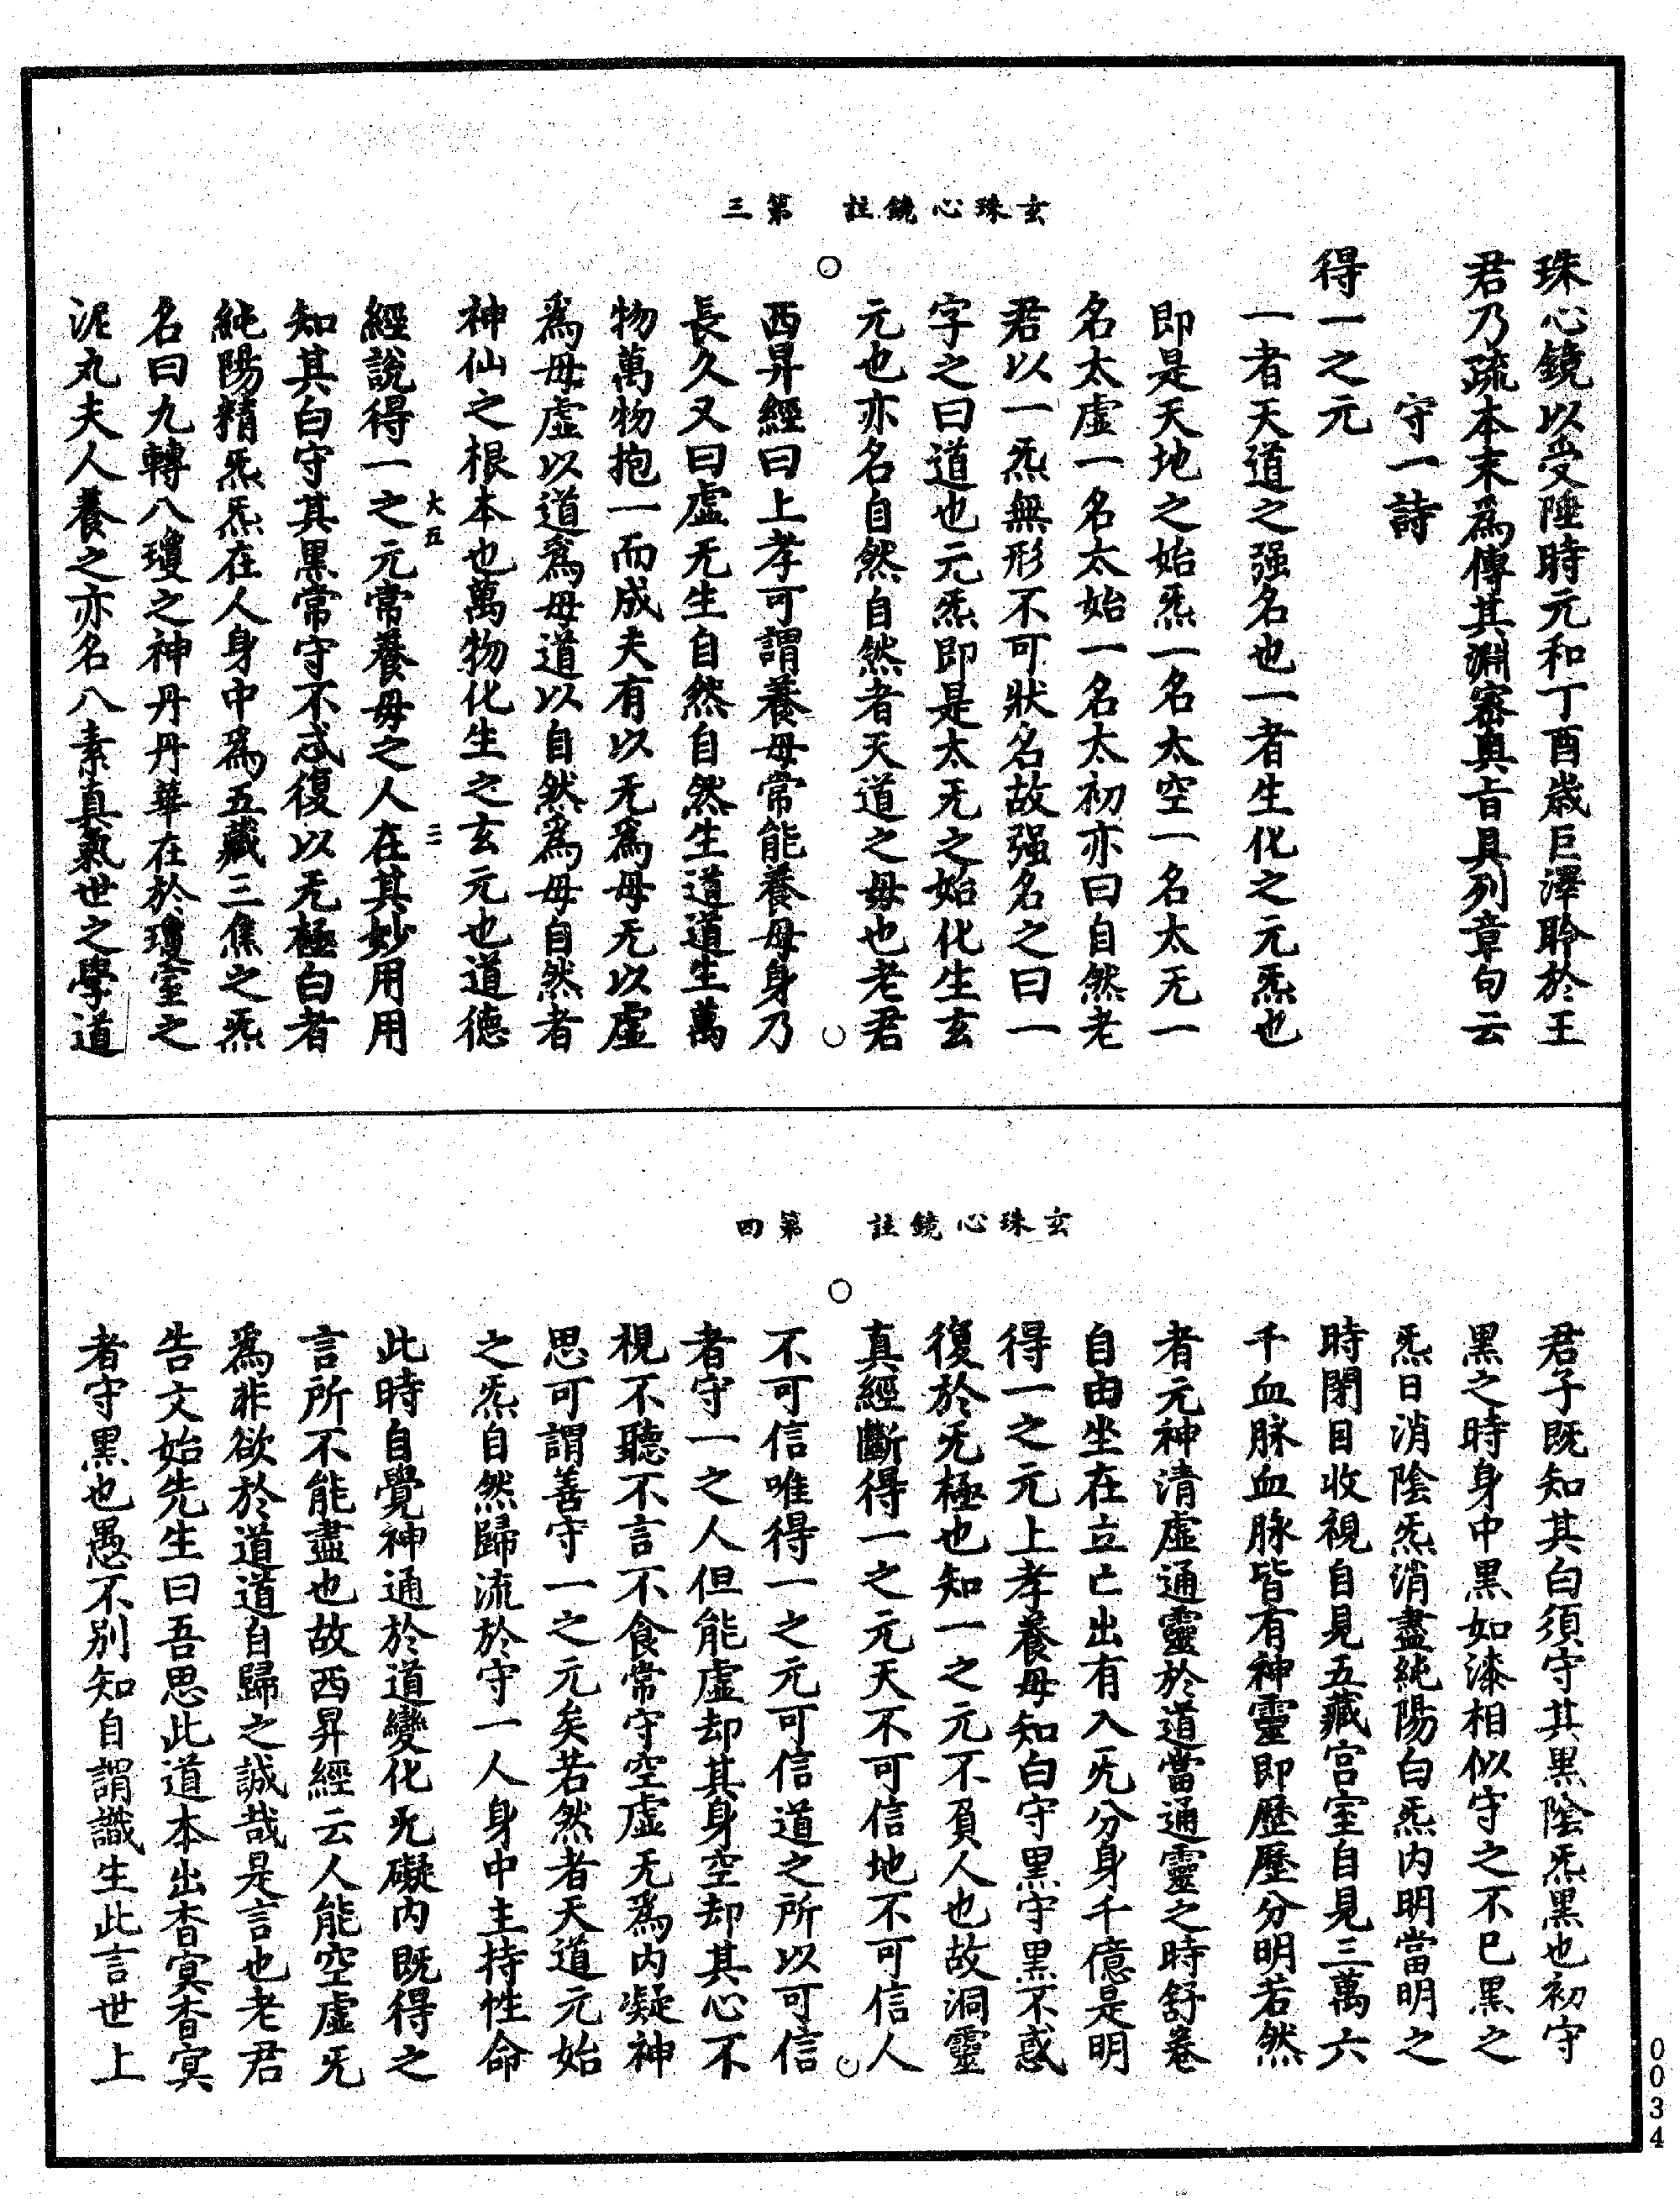 玄珠心鏡註　第三
珠心鏡以受陲時元和丁酉歲巨澤聆於王
君乃疏本末爲傳其淵密奥旨具列章句云
守一詩
得一之元
一者天道之强名也一者生化之元炁也
即是天地之始炁一名太空一名太无一
名太虛一名太始一名太初亦曰自然老
君以一炁無形不可狀名故强名之曰一
字之曰道也元炁即是太无之始化生玄
元也亦名自然自然者天道之母也老君
西昇經曰上孝可謂養母常能養母身乃
長久又曰虛无生自然自然生道道生萬
物萬物抱一而成夫有以无爲母无以虛
爲母虛以道爲母道以自然爲母自然者
神仙之根本也萬物化生之玄元也道德
大五　二
經說得一之元常養母之人在其妙用用
知其白守其黑常守不忒復以无極白者
純陽精炁炁在人身中爲五藏三焦之炁
名曰九轉八瓊之神丹丹華在於瓊室之
泥丸夫人養之亦名八素真氣世之學道
玄珠心鏡註　第四
君子既知其白須守其黑黑陰炁黑也初守
黑之時身中黑如漆相似守之不已黑之
炁日消陰炁消盡純陽白炁内明當明之
時閉目收視自見五藏宫室自見三萬六
千血脉血脉皆有神靈即歷歷分明若然
者元神清虛通靈於道當通靈之時舒卷
自由坐在立亡出有入旡分身千億是明
得一之元上孝養母知白守黑守黑不惑
復於旡極也知一之元不負人也故洞靈
真經斷得一之元天不可信地不可信人
不可信唯得一之元可信道之所以可信
者守一之人但能虛却其身空却其心不
視不聽不言不食常守空虛无爲内凝神
思可謂善守一之元矣若然者天道元始
之炁自然歸流於守一人身中主持性命
此時自覺神通於道變化旡礙内既得之
言所不能盡也故西昇經云人能空虛旡
爲非欲於道道自歸之誠哉是言也老君
告文始先生曰吾思此道本出杳㝠杳㝠
者守黑也愚不別知自謂識生此言世上
0034